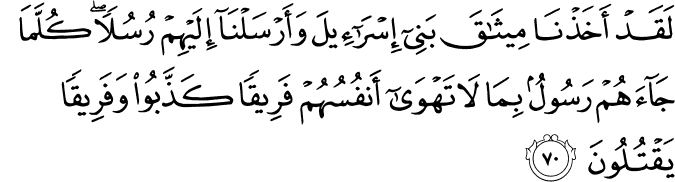 لَقَدْ أَخَذْنَا مِيثَٰقَ بَنِىٓ إِسْرَٰٓءِيلَ وَأَرْسَلْنَآ إِلَيْهِمْ رُسُلًا ۖ كُلَّمَا
جَآءَهُمْ رَسُولٌۢ بِمَا لَا تَهْوَىٰٓ أَنفُسُهُمْ فَرِيقًا كَذَّبُوا۟ وَفَرِيقًا
يَقْتُلُونَ ٧٠